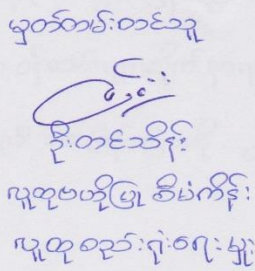 မှတ်တမ်းတင်သူ
ဦးတင်သိန်း
လူထုဗဟိုပြု စီမံကိန်း
လူထုစည်းရုံးရေးမှူး